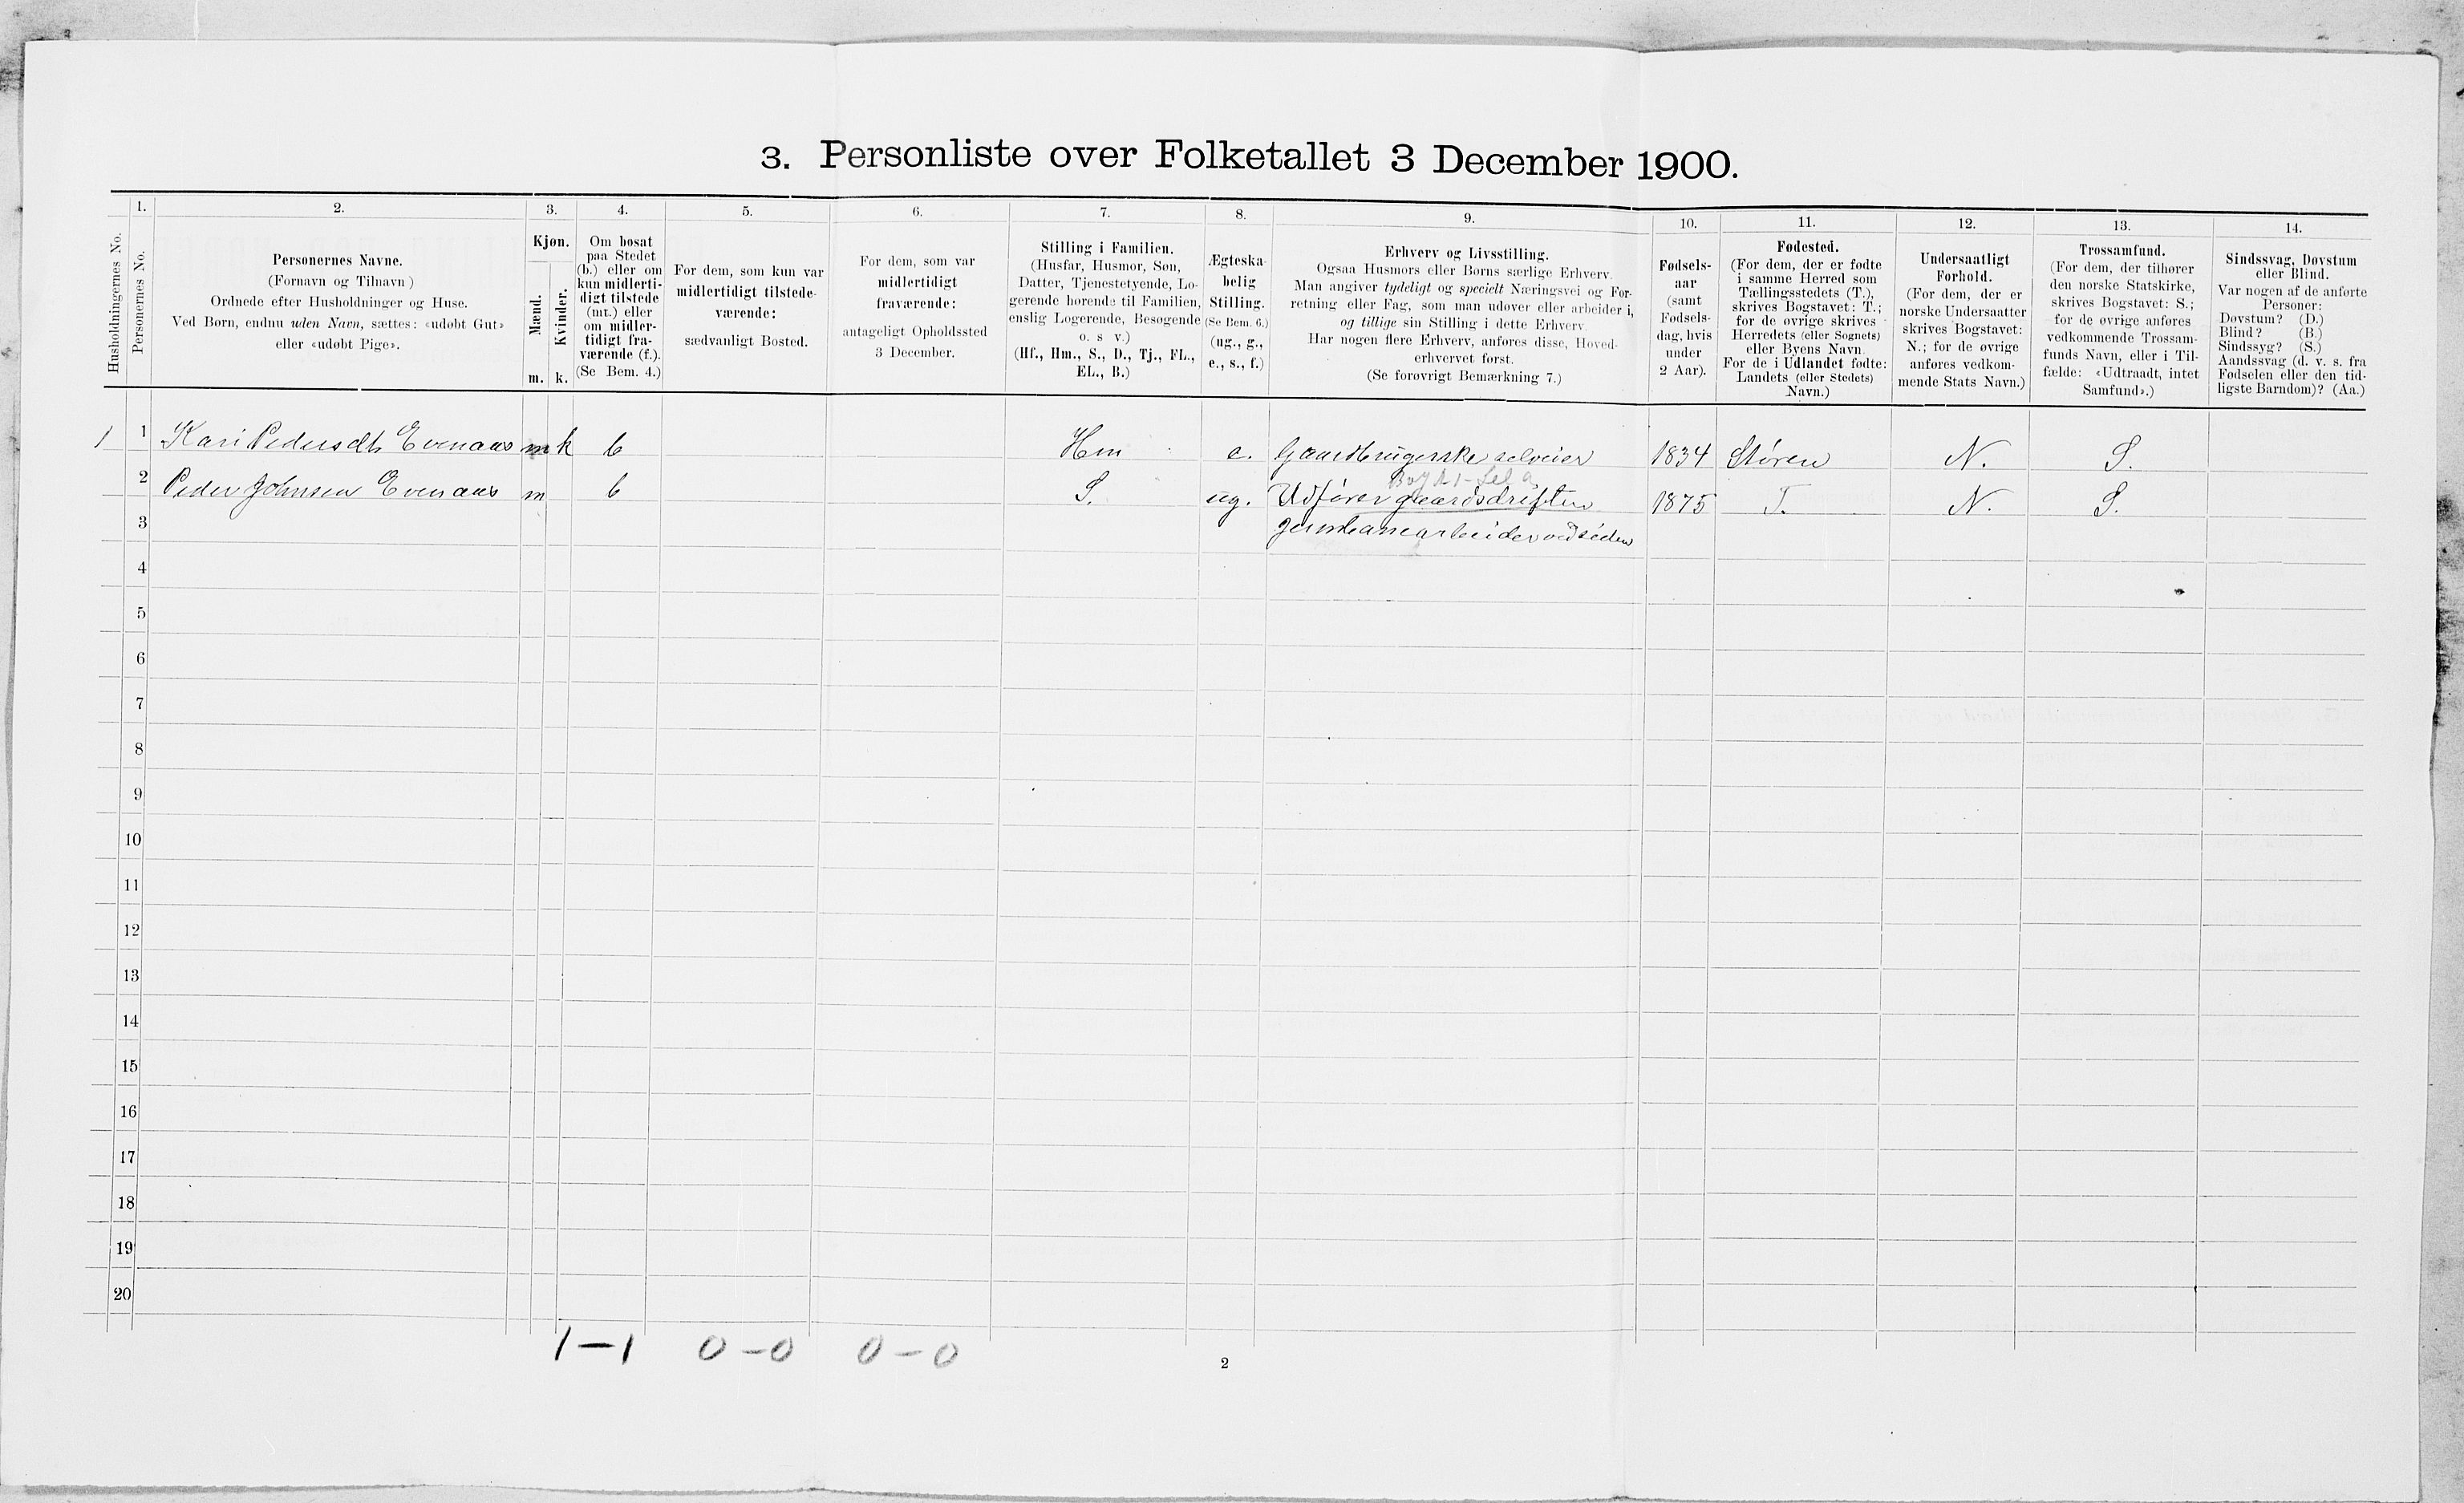 3. Personliste over Folketallet 3 December 1900.
Husholdningernes No.
1.
Personernes No.
2.
Personernes Navne.
(Fornavn og Tilnavn)
Ordnede efter Husholdninger og Huse.
Ved Børn, endnu uden Navn, sættes: «udøbt Gut»
eller «udøbt Pige».
3.
Kjøn.
Mænd.
m.
Kvinder.
k.
4.
Om bosat
paa Stedet
(b.) eller om
kun midlerti-
digt tilstede
(mt.) eller
om midler-
tidigt fra-
værende (f.).
(Se Bem. 4.)
5.
For dem, som kun var
midlertidigt tilstede-
værende:
sædvanligt Bosted.
6.
For dem, som var
midlertidigt
fraværende:
antageligt Opholdssted
3 December.
7.
Stilling i Familien.
(Husfar, Husmor, Søn,
Datter, Tjenestetyende, Lo-
gerende hørende til Familien,
enslig Logerende, Besøgende
o. s v.)
(Hf., Hm., S., D., Tj., FL.,
EL., B.)
8.
Ægteska-
belig
Stilling.
(Se Bem. 6.)
(ug., g.,
e., s., f.)
9.
Erhverv og Livsstilling.
Ogsaa Husmors eller Børns særlige Erhverv.
Man angiver tydeligt og specielt Næringsvei og For-
retning eller Fag, som man udøver eller arbeider i,
og tillige sin Stilling i dette Erhverv.
Har nogen flere Erhverv, anføres disse, Hoved-
erhvervet først.
(Se forøvrigt Bemærkning 7.)
10.
Fødsels-
aar
(samt
Fødsels-
dag, hvis
under
2 Aar).
11.
Fødested.
(For dem, der er fødte
i samme Herred som
Tællingsstedets (T.),
skrives Bogstavet: T.;
for de øvrige skrives
Herredets (eller Sognets)
eller Byens Navn.
For de i Udlandet fødte:
Landets (eller Stedets)
Navn.)
12.
Undersaatligt
Forhold.
(For dem, der er
norske Undersaatter
skrives Bogstavet:
N.; for de øvrige
anføres vedkom-
mende Stats Navn.)
13.
Trossamfund.
(For dem, der tilhører
den norske Statskirke,
skrives Bogstavet: S.;
for de øvrige anføres
vedkommende Trossam-
funds Navn, eller i Til-
fælde: «Udtraadt, intet
Samfund».)
14.
Sindssvag, Døvstum
eller Blind.
Var nogen af de anførte
Personer:
Døvstum? (D.)
Blind? (B.)
Sindssyg? (S.)
Aandssvag (d. v. s. fra
Fødselen eller den tid-
ligste Barndom)? (Aa.)
1 1 Kari Pedersdt Evenaas m k b Hm e. Gaardbrugerske selveier 1834 Støren N. S.
2 Peder Johnsen Evenaas m b S. ug. Udfører gaardsdriften 1875 T. N. S.
3 jernbanearbeider ved siden
4
5
6
7
8
9
10
11
12
13
14
15
16
17
18
19
20
1-1 0-0 0-0
2